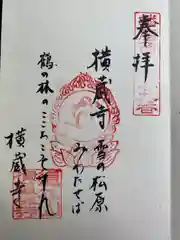 奉拝
雪の松原
みわたせば
横蔵寺
鶴の林の
こゝちこそすれ
横蔵寺